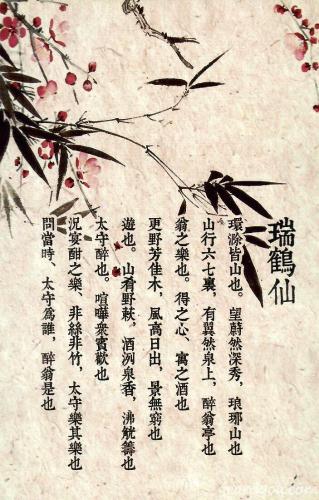 瑞鶴仙
環滁皆山也。望蔚然深秀，琅琊山也
山行六七裏，有翼然泉上，醉翁亭也
翁之樂也。得之心、寓之酒也
更野芳佳木，風高日出，景無窮也
遊也。山肴野蔌，酒洌泉香，沸觥籌也
太守醉也。喧嘩衆賓歡也
況宴酣之樂、非絲非竹，太守樂其樂也
問當時、太守為誰，醉翁是也